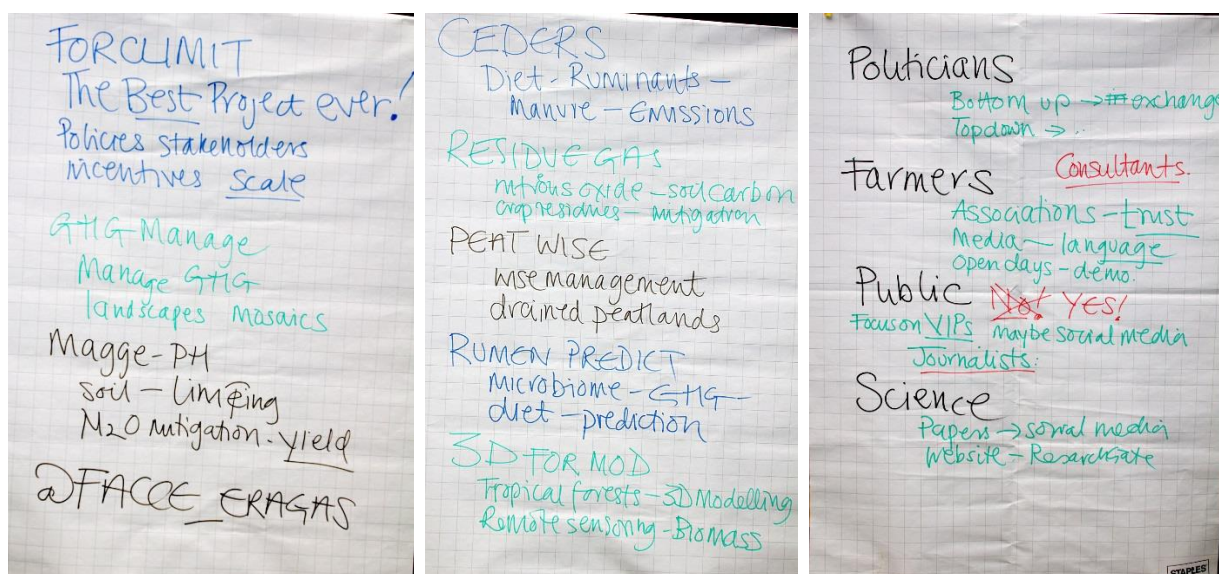 FORCLIMIT
The Best Project ever!
Policies stakeholders
incentives scale
GHG Manage
Manage GHG
landscapes mosaics
Magge-PH
soil - liming
N2O mitigation - yield
@FACCE_ERAGAS
CEDERS
Diet - Ruminants -
Manure - Emissions
RESIDUE GAS
nitrous oxide - soil carbon
crop residues - mitigation
PEAT WISE
wise management
drained peatlands
RUMEN PREDICT
microbiome - GHG -
diet - prediction
3D FOR MOD
Tropical forests - 3D Modelling
Remote sensoring - Biomass
Politicians
Bottom up → exchange
Topdown → ..
Farmers Consultants.
Associations - trust
Media - language
Open days - demo.
Public Not YES!
Focus on VIPs maybe social media
Journalists:
Science
Papers → social media
Website - ResearchGate
STAPLES